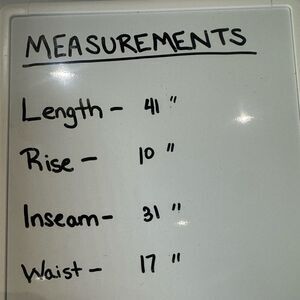 MEASUREMENTS
Length - 41 "
Rise - 10 "
Inseam - 31 "
Waist - 17 "